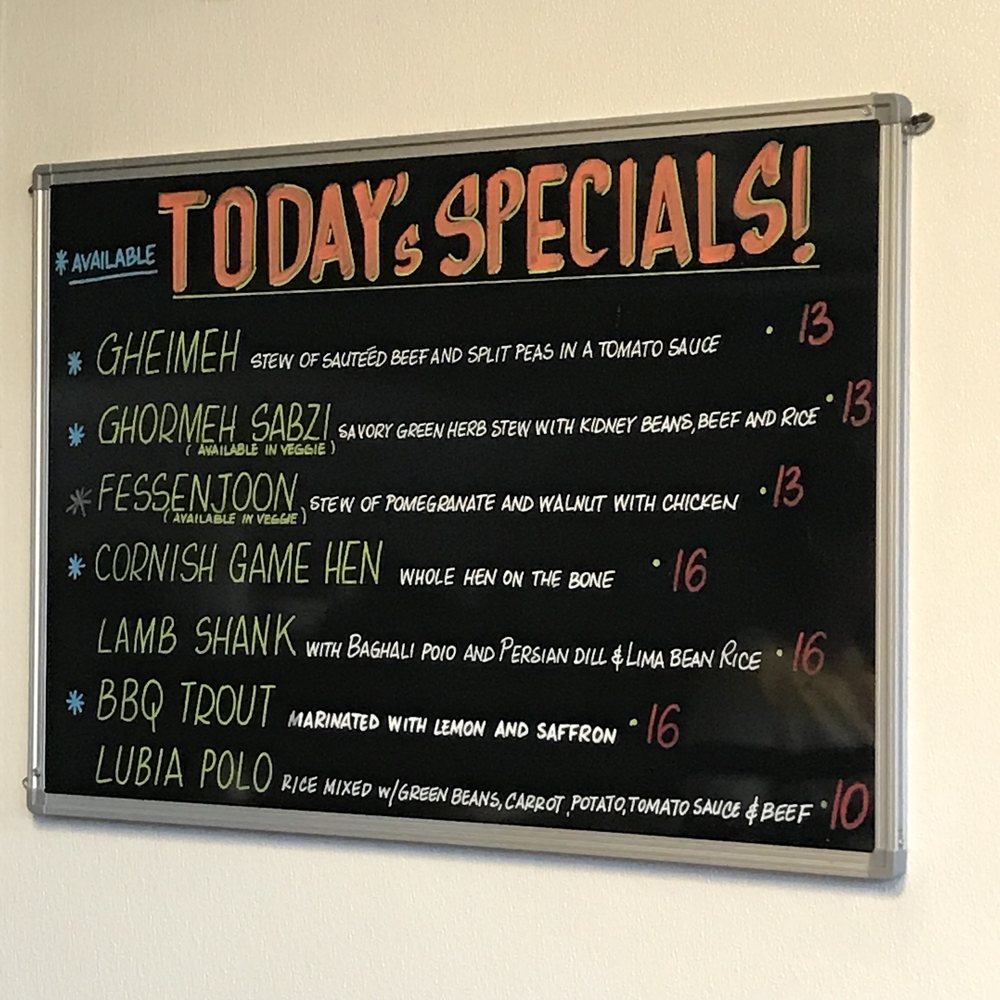 TODAY's SPECIALS!
* AVAILABLE
* GHEIMEH STEW OF SAUTEÉD BEEF AND SPLIT PEAS IN A TOMATO SAUCE • 13
* GHORMEH SABZI SAVORY GREEN HERB STEW WITH KIDNEY BEANS, BEEF AND RICE • 13
( AVAILABLE IN VEGGIE )
* FESSENJOON STEW OF POMEGRANATE AND WALNUT WITH CHICKEN • 13
( AVAILABLE IN VEGGIE )
* CORNISH GAME HEN WHOLE HEN ON THE BONE • 16
LAMB SHANK WITH BAGHALI POLO AND PERSIAN DILL & LIMA BEAN RICE • 16
* BBQ TROUT MARINATED WITH LEMON AND SAFFRON • 16
LUBIA POLO RICE MIXED W/GREEN BEANS, CARROT, POTATO, TOMATO SAUCE & BEEF • 10